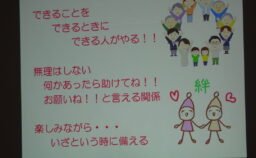 できることを
できるときに
できる人がやる！！
無理はしない
何かあったら助けてね！！
お願いね！！と言える関係
絆
楽しみながら・・・
いざという時に備える